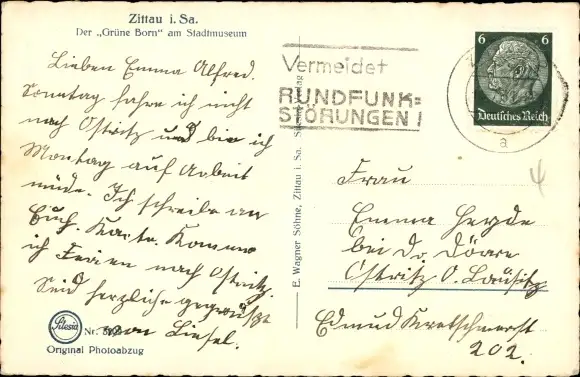 Zittau i. Sa.
Der „Grüne Born" am Stadtmuseum
Lieben Emma Alfred.
Sonntag fahre ich nicht
nach Ostritz und bin ich
Montag auf Arbeit
müde. Ich schreibe an
Euch. Karte. Komme
ich Ferien nach Ostritz.
Seid herzliche gegrüsst
von Liesel.
Silesia
Nr.
Original Photoabzug
E. Wagner Söhne, Zittau i. Sa.
Verlag
Vermeidet
RUNDFUNK=
STÖRUNGEN!
6 6
Deutsches Reich
a
Frau
Emma
bei
Ostritz O. Lausitz
Edmund Kretschmerst
202.